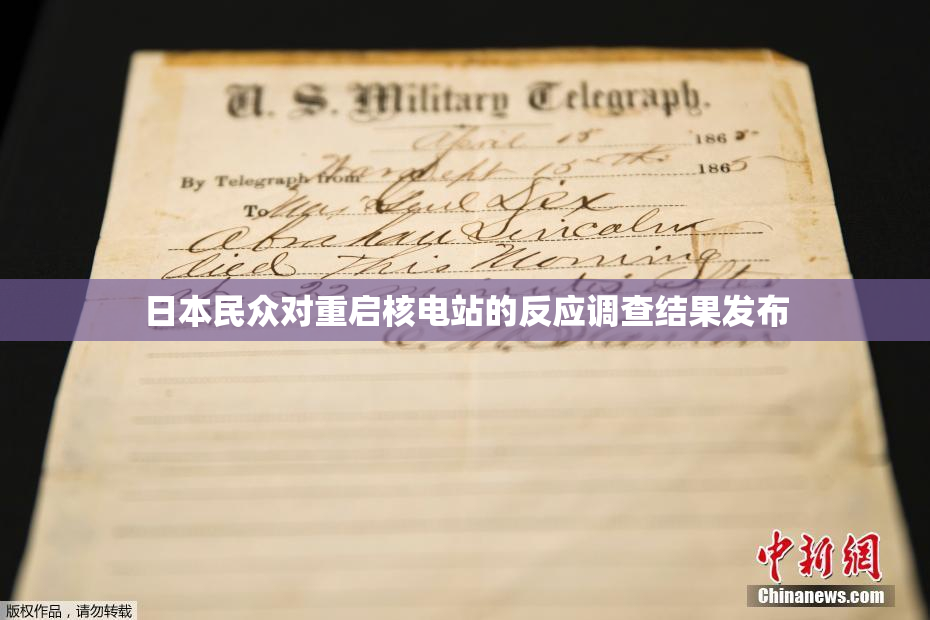 U. S. Military Telegraph.
April 15 1865
By Telegraph from War Dept 15th 1865
To Maj Genl Dix
Abraham Lincoln
died This Morning
at 22 minutes after
日本民众对重启核电站的反应调查结果发布
E. M. Stanton
中新网
Chinanews.com
版权作品，请勿转载